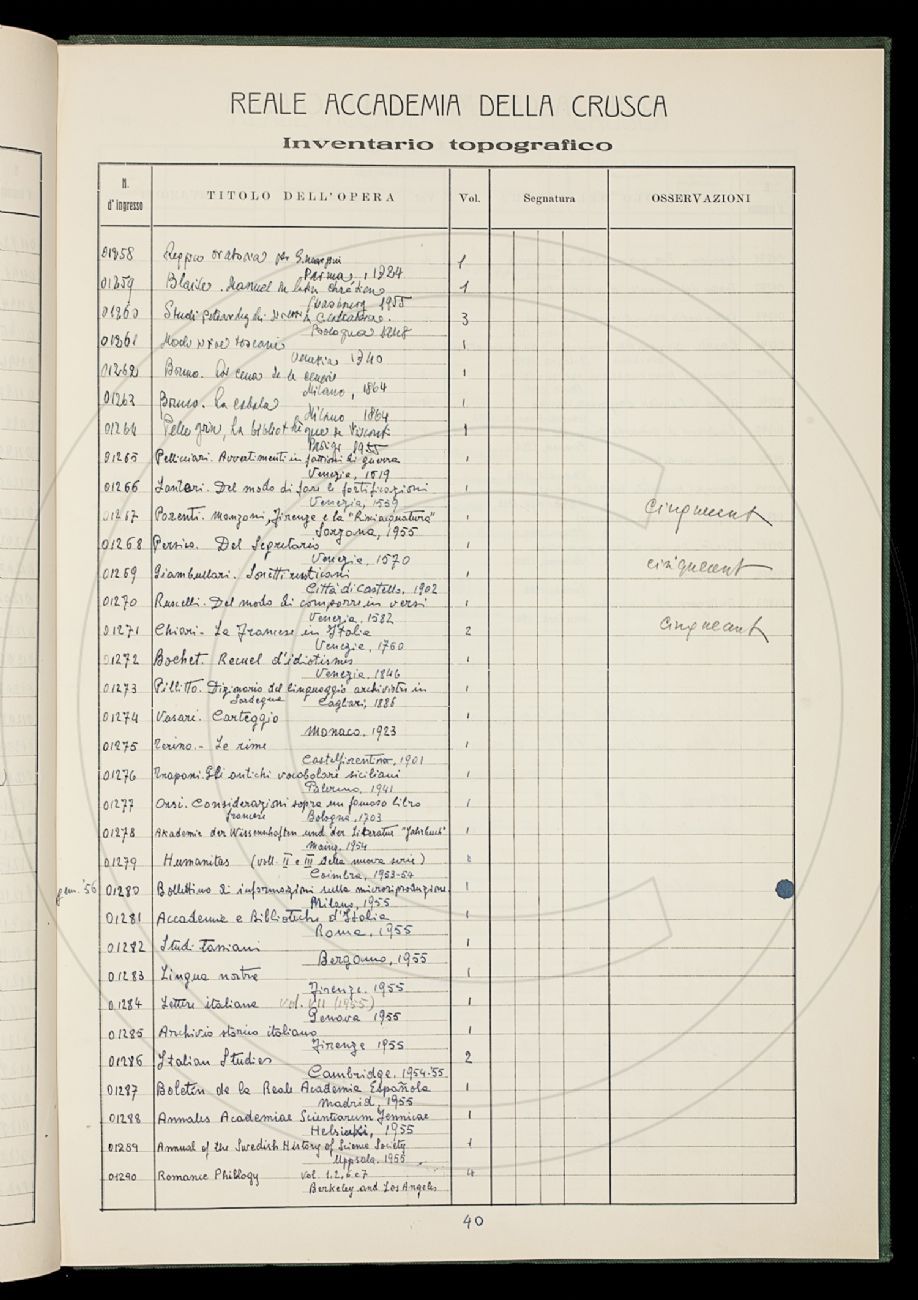 REALE ACCADEMIA DELLA CRUSCA
Inventario topografico
N. d'ingresso TITOLO DELL'OPERA Vol. Segnatura OSSERVAZIONI
01258 oratoria per 1
Parma, 1724
01259 Blaise. Manuel du latin chrétien 1
Strasbourg 1955
01260 Studi 3
Bologna
01261 Modi toscani 1
Venezia 1740
01262 Bruno. La cena de le ceneri 1
Milano, 1864
01263 Bruno. La cabala 1
Milano 1864
01264 Pellegrin, la bibliothèque de Visconti 1
Paris 1955
01265 Pelliciari. Avvertimenti in fattioni di guerra 1
Venezia, 1619
01266 Lanteri. Del modo di fare le fortificazioni 1
Venezia, 1559
01267 Parenti. Manzoni, Firenze e la "Risciaquatura" 1 cinquecent
Sarzana, 1955
01268 Persico. Del Segretario 1
Venezia, 1570
01269 Giambullari. Sonetti rusticani 1 cinquecent
Città di Castello, 1902
01270 Ruscelli. Del modo di comporre in versi 1
Venezia, 1582
01271 Chiari. La Francese in Italia 2 cinquecent
Venezia, 1760
01272 Bochet. Recuel d'idiotismes 1
Venezia, 1846
01273 Pillitto. Dizionario del linguaggio archivistico in 1
Sardegna Cagliari, 1886
01274 Vasari. Carteggio 1
Monaco, 1923
01275 Terino. - Le rime 1
Castelfiorentino, 1901
01276 Trapani. Gli antichi vocabolari siciliani 1
Palermo, 1941
01277 Orsi. Considerazioni sopra un famoso libro 1
francese Bologna, 1703
01278 Akademie der Wissenschaften und der Literatur "Jahrbuch" 1
Mainz, 1954
01279 Humanitas (voll. II e III della nuova serie)
Coimbra, 1953-54
gen. '56 01280 Bollettino di informazioni sulla microriproduzione. 1
Milano, 1955
01281 Accademie e Biblioteche d'Italia 1
Roma, 1955
01282 Studi Tassiani 1
Bergamo, 1955
01283 Lingua nostra 1
Firenze, 1955
01284 Lettere italiane vol. VII (1955) 1
Genova 1955
01285 Archivio storico italiano 1
Firenze 1955
01286 Italian Studies 2
Cambridge, 1954-55
01287 Boletín de la Reale Academia Española 1
Madrid, 1955
01288 Annales Academiae Scientiarum Fennicae 1
Helsinki, 1955
01289 Annual of the Swedish History of Science Society 1
Uppsala, 1955
01290 Romance Philology vol. 1, 2, 6 e 7 4
Berkeley and Los Angeles
40